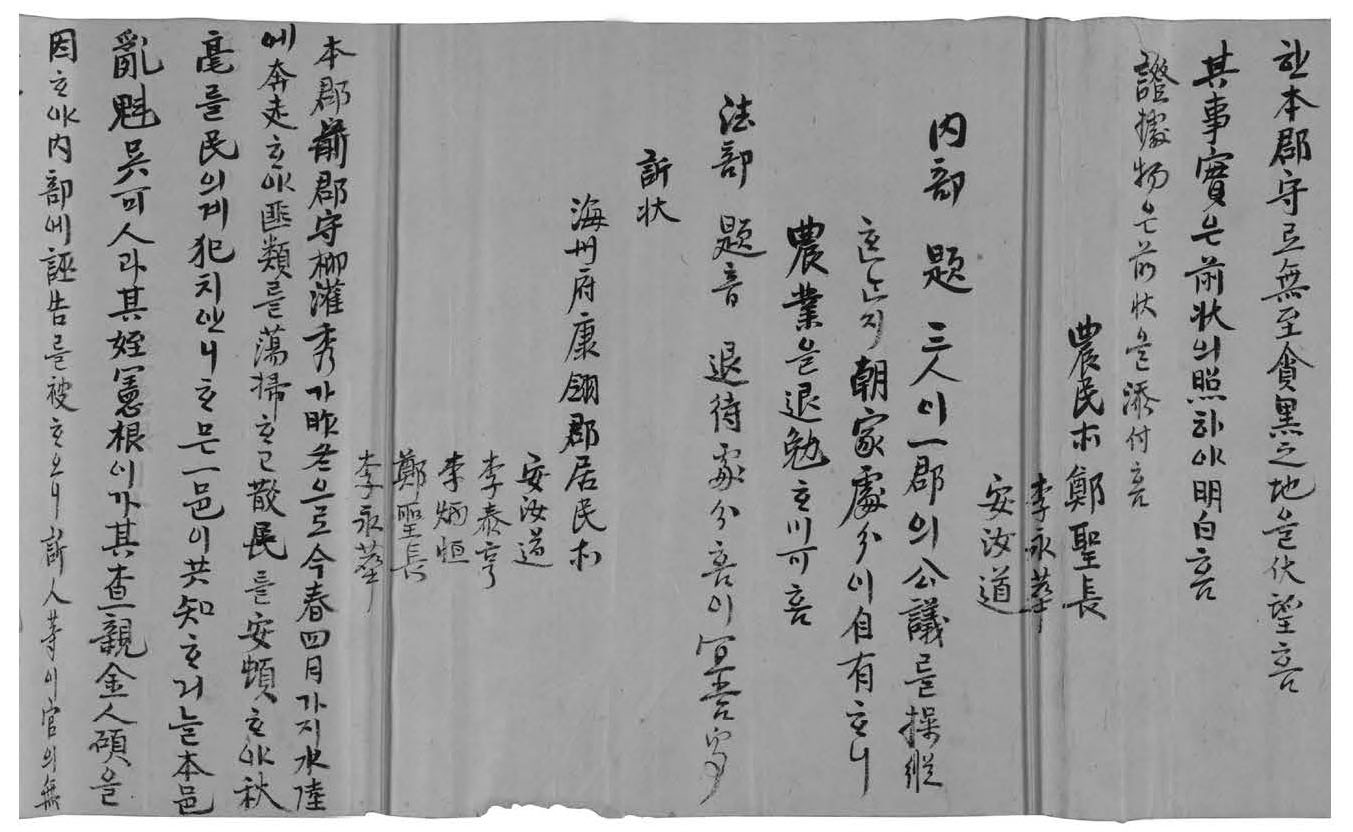 한本郡守로無至貪黑之地을伏望홈
其事實은前狀의照하야明白홈
證據物은前狀을添付홈
農民等 鄭聖長
李永華
安汝道
內部 題 三人이一郡의公議를操縱
하는지朝家處分이自有하니
農業을退勉하미可홈
法部 題音 退待處分홈이宜홈
訴狀
海州府康翎郡居民等
安汝道
李泰亨
李炳恒
鄭聖長
李永華
本郡前郡守柳灌秀가昨冬으로今春四月가지水陸
에奔走하야匪類를蕩掃하고散民을安頓하야秋
毫를民의게犯치안니하믄一邑이共知하거늘本邑
亂魁吳可人라其姪憲根이가其查親金人碩을
因하야內部에誣告를被하오니訴人等이官의無